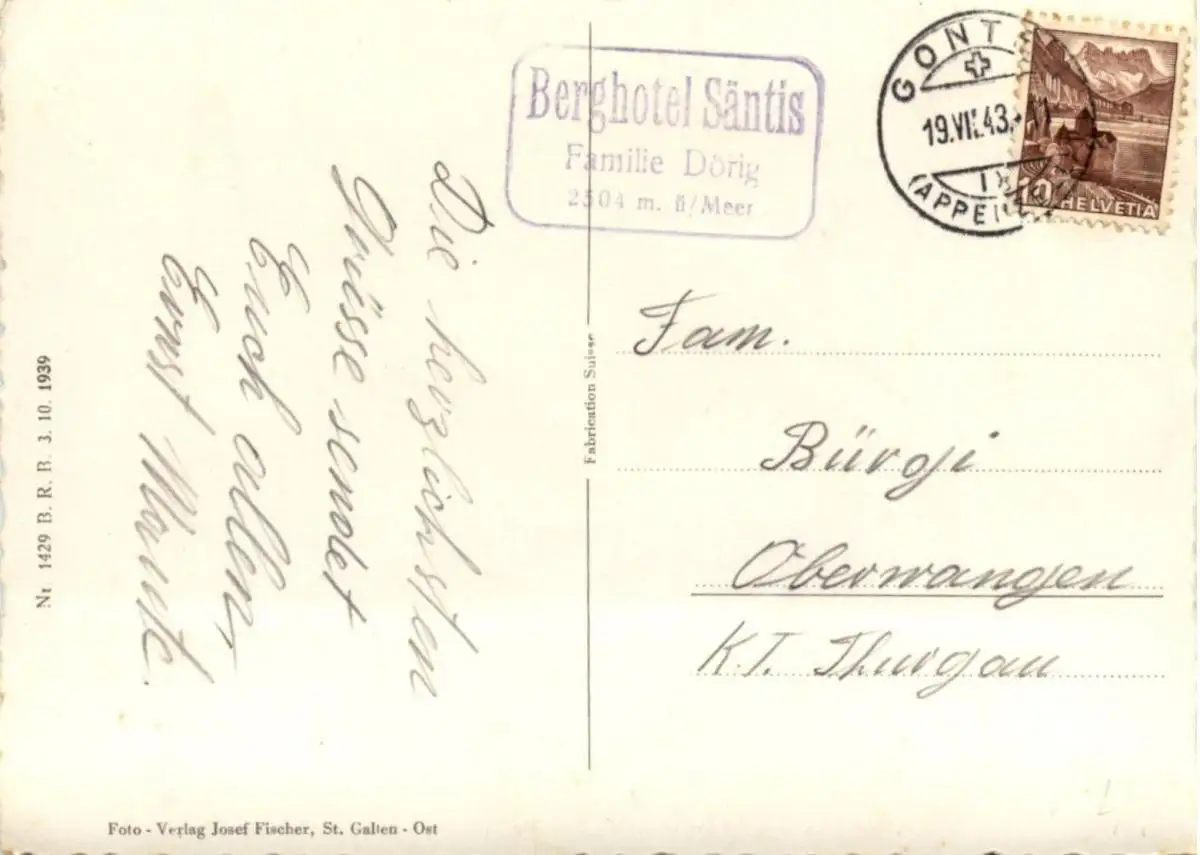 Berghotel Säntis
Familie Dörig
2504 m. ü/Meer
GONT
19.VII.43.
IX
(APPE
10 HELVETIA
Die herzlichsten
Grüsse sendet
Euch allen
Ernst
Fam.
Bürgi
Oberwangen
KT. Thurgau
Fabrication Suisse
Nr. 1429 B. R. B. 3. 10. 1939
Foto - Verlag Josef Fischer, St. Gallen - Ost